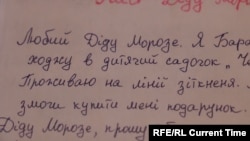 Любий Діду Морозе. Я Бара
ходжу в дитячий садочок "Ч
Проживаю на лінії зіткненя.
змоги купити мені подарунок.
Діду Морозе, прошу
RFE/RL Current Time